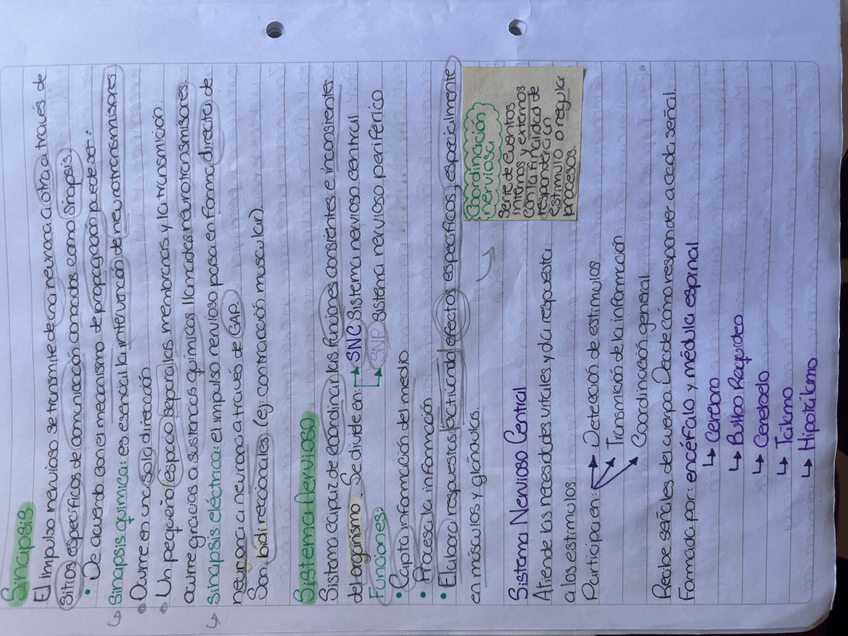 Sinapsis
El impulso nervioso se transmite de una neurona a otra a través de
sitios específicos de comunicación conocidos como sinapsis.
• De acuerdo con el mecanismo de propagación puede ser:
↳ Sinapsis química: es esencial la intervención de neurotransmisores
• Ocurre en una sola dirección
• Un pequeño espacio separa las membranas y la transmisión
ocurre gracias a sustancias químicas llamadas neurotransmisores.
↳ Sinapsis eléctrica: el impulso nervioso pasa en forma directa de
neurona a neurona a través de GAP.
Son bidireccionales (ej: contracción muscular).
Sistema Nervioso
Sistema capaz de coordinar las funciones conscientes e inconsientes
del organismo. Se divide en: → SNC Sistema nervioso central
→ SNP Sistema nervioso periférico
Funciones:
• Capta información del medio
• Procesa la información
• Elabora respuestas (activando) efectos específicos, especialmente
en músculos y glándulas.
Coordinación
nerviosa
Serie de eventos
internos y externos
con la finalidad de
responder a un
estímulo o regular
procesos.
Sistema Nervioso Central
Atiende las necesidades vitales y da respuesta
a los estímulos
Participa en: → Detección de estímulos
→ Transmisión de la información
→ Coordinación general
Recibe señales del cuerpo. Decide cómo responder a cada señal.
Formado por: encéfalo y médula espinal
↳ Cerebro
↳ Bulbo Raquídeo
↳ Cerebelo
↳ Tálamo
↳ Hipotálamo